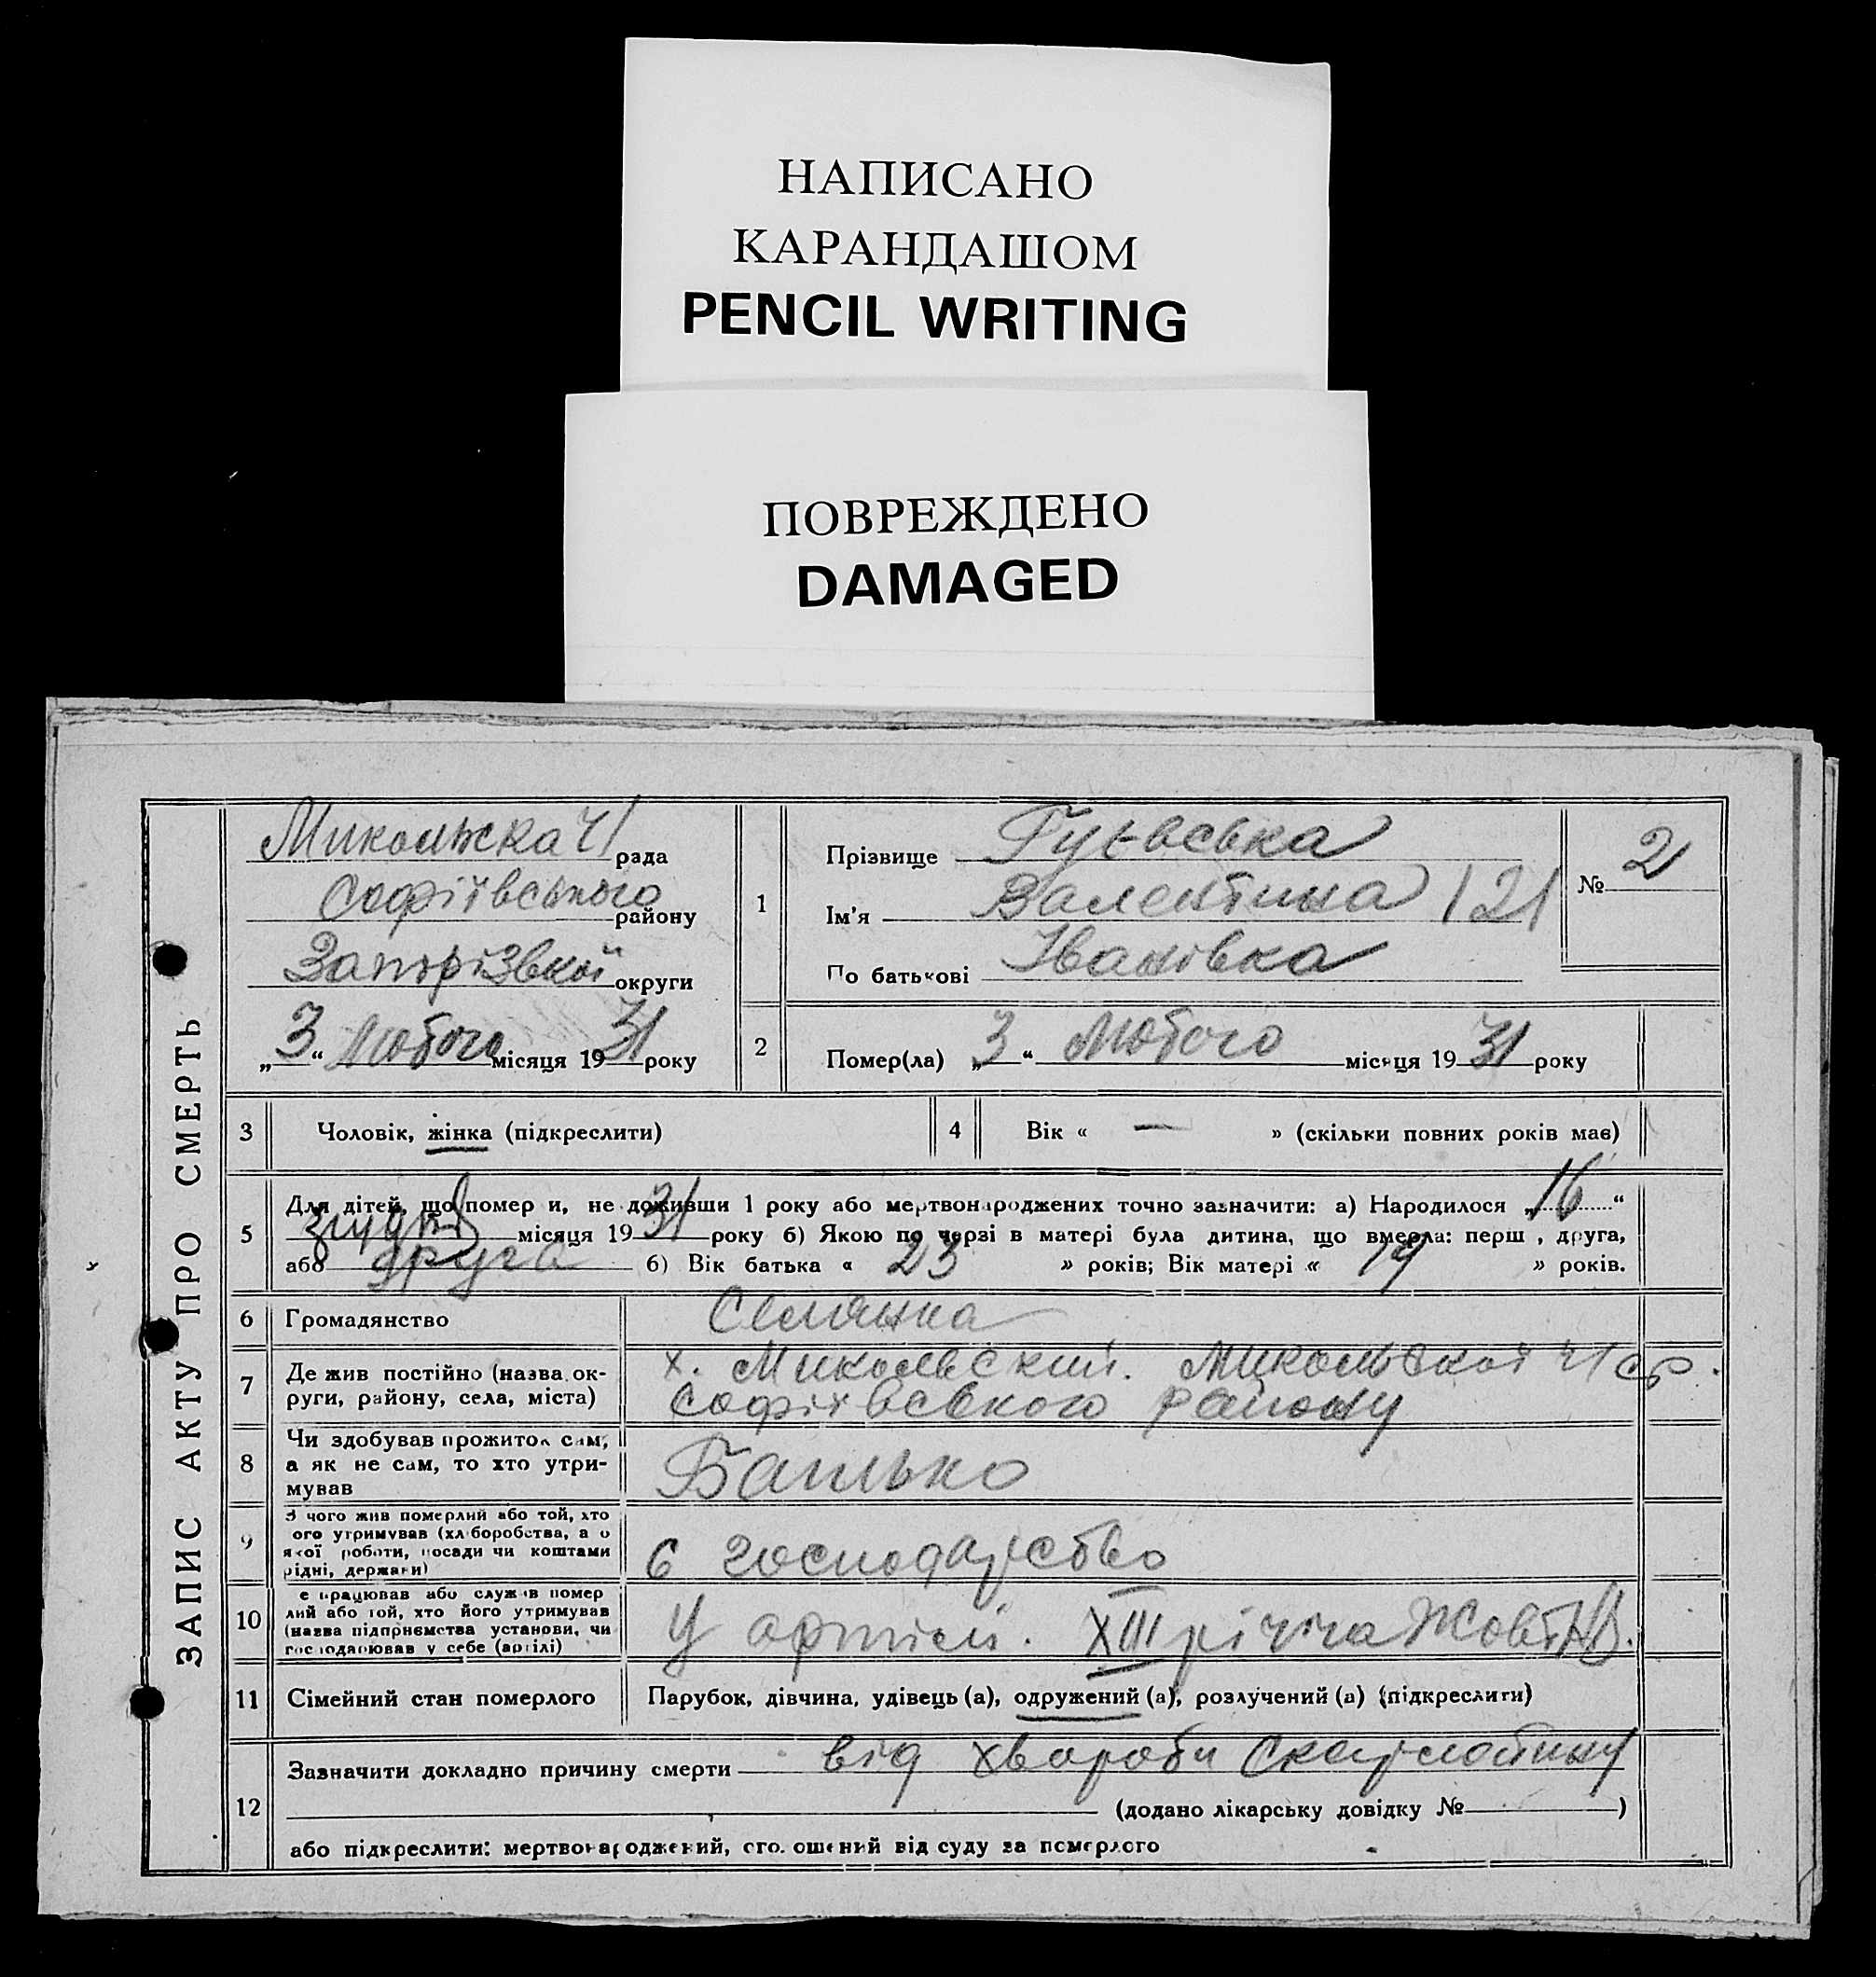 НАПИСАНО
КАРАНДАШОМ
PENCIL WRITING
ПОВРЕЖДЕНО
DAMAGED
ЗАПИС АКТУ ПРО СМЕРТЬ
рада
Софіївського району
округи
„3“ Лютого місяця 1931 року
1
Прізвище
Ім'я Валентина 121
По батькові Іванівка
№ 2
2
Помер(ла) „3“ Лютого місяця 1931 року
3 Чоловік, жінка (підкреслити)
4 Вік « — » (скільки повних років має)
5 Для дітей, що помер и, не доживши 1 року або мертвонароджених точно зазначити: а) Народилося „16“
місяця 1931 року б) Якою по черзі в матері була дитина, що вмерла: перш , друга,
або друга б) Вік батька « 23 » років; Вік матері « 19 » років.
6 Громадянство Селянка
7 Де жив постійно (назва ок-
руги, району, села, міста)
х. Микольский.
Софіївського району
8 Чи здобував прожиток сам,
а як не сам, то хто утри-
мував
Батько
9 З чого жив померлий або той, хто
ого утримував (хліборобства, а о
якої роботи, посади чи коштами
рідні, держави)
с господарство
10 е працював або служив помер
лий або той, хто його утримував
(назва підприємства установи, чи
господарював у себе (артілі)
У артілі. XIII річча Жовтня.
11 Сімейний стан померлого Парубок, дівчина, удівець (а), одружений (а), розлучений (а) (підкреслити)
12 Зазначити докладно причину смерти від хвороби Скарлатину
(додано лікарську довідку № )
або підкреслити: мертвонароджений, оголошений від суду за померлого